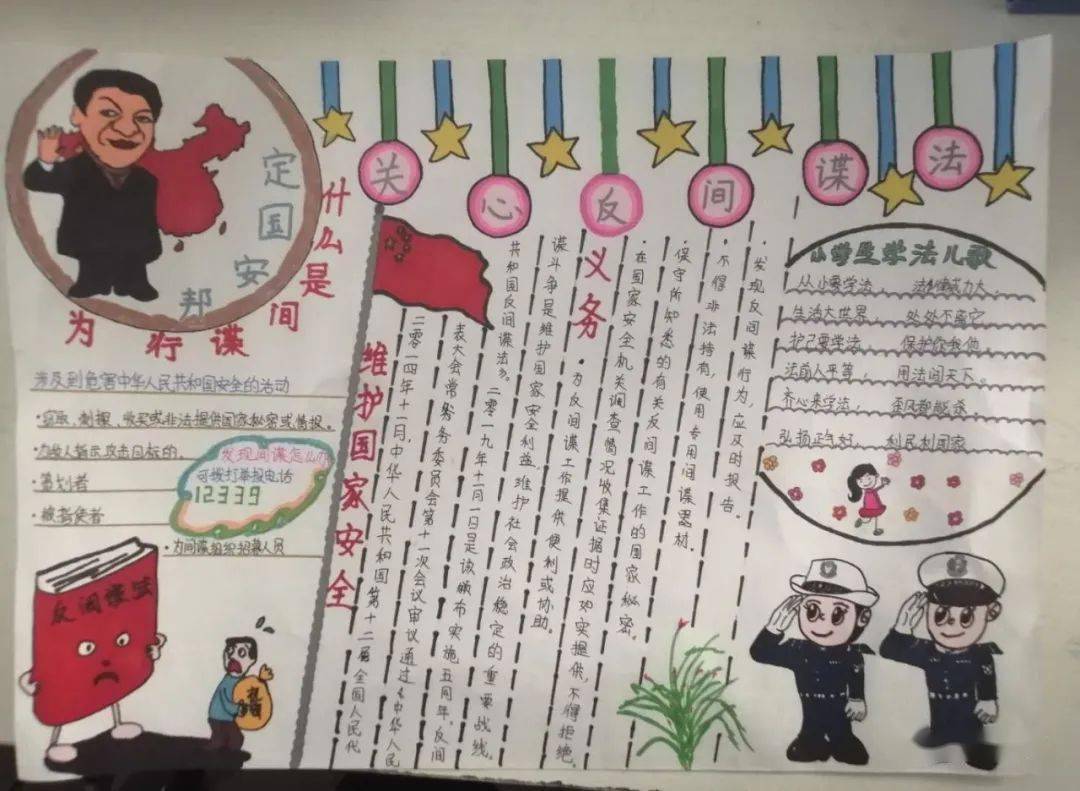 关心反间谍法
定国安邦
什么是间谍行为
涉及到危害中华人民共和国安全的活动
·窃取、刺探、收买或非法提供国家秘密或情报。
·为敌人指示攻击目标的
·策划者
·被指使者
·为间谍组织招募人员
发现间谍怎么办
可拨打举报电话
12339
反间谍法
维护国家安全
二零一四年十一月,中华人民共和国第十二届全国人民代
表大会常务委员会第十一次会议审议通过《中华人民
共和国反间谍法》。
二零一九年十一月一日是该颁布实施五周年,反间
谍斗争是维护国家安全利益,维护社会政治稳定的重要战线。
义务
·为反间谍工作提供便利或协助。
·在国家安全机关调查情况收集证据时应如实提供,不得拒绝。
·保守所知悉的有关反间谍工作的国家秘密。
·不得非法持有,使用专用间谍器材。
·发现反间谍行为,应及时报告。
小学生学法儿歌
从小要学法, 威力大,
生活大世界, 处处不离它
护己要学法, 保护你我他
法前人平等, 用法闯天下。
齐心来学法, 歪风都能杀
弘扬正气好, 利民利国家